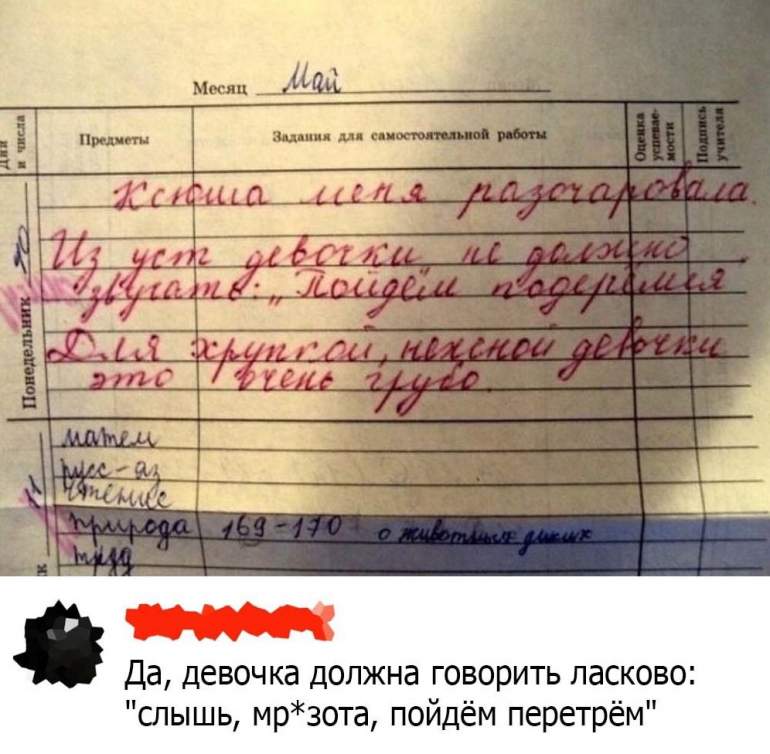 Месяц Май
Дни и числа
Предметы
Задания для самостоятельной работы
Оценка успевае-мости
Подпись учителя
Понедельник
Ксюша меня разочаровала.
Из уст девочки не должно
звучать: „Пойдём подерёмся
Для хрупкой, нежной девочки
это очень грубо.
11
матем
русс-яз
чтение
природа 169-170 о животных диких
труд
к
Да, девочка должна говорить ласково:
"слышь, мр*зота, пойдём перетрём"